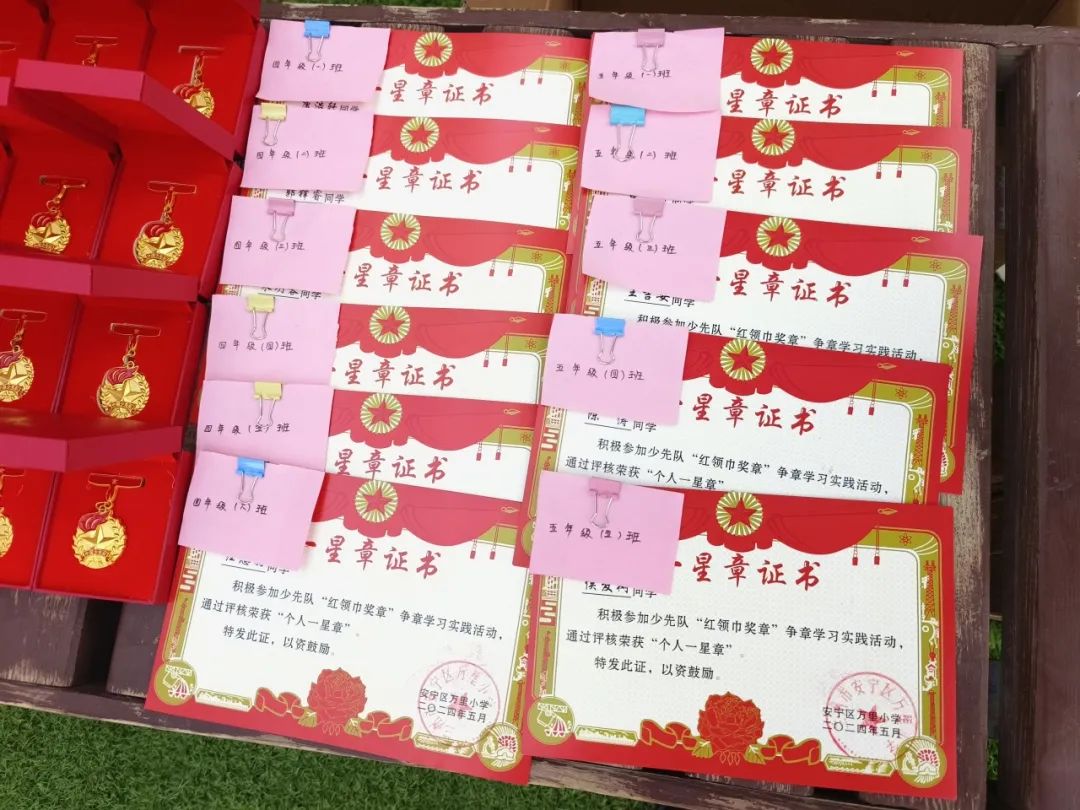 四年级(一)班
星章证书
同学
四年级(二)班
星章证书
同学
四年级(三)班
星章证书
同学
四年级(四)班
星章证书
四年级(五)班
星章证书
四年级(六)班
星章证书
同学
积极参加少先队“红领巾奖章”争章学习实践活动，
通过评核荣获“个人一星章”
特发此证，以资鼓励。
安宁区万里小学
二〇二四年五月
五年级(一)班
星章证书
五年级(二)班
星章证书
五年级(三)班
星章证书
同学
积极参加少先队“红领巾奖章”争章学习实践活动，
五年级(四)班
星章证书
陈涛同学
积极参加少先队“红领巾奖章”争章学习实践活动，
通过评核荣获“个人一星章”
五年级(五)班
星章证书
同学
积极参加少先队“红领巾奖章”争章学习实践活动，
通过评核荣获“个人一星章”
特发此证，以资鼓励。
安宁区万里小学
二〇二四年五月